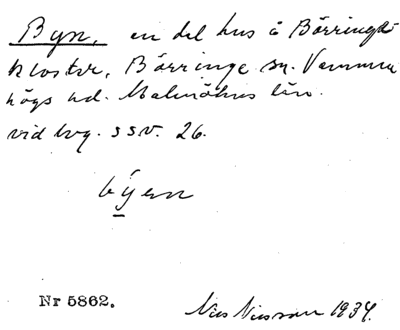 Byn, en del hus å Börringe
kloster, Börringe sn. Vemmen
högs hd. Malmöhus län.
vid lvg. s s v. 26.
býen
Nr 5862.
Nils Nilsson 1934.